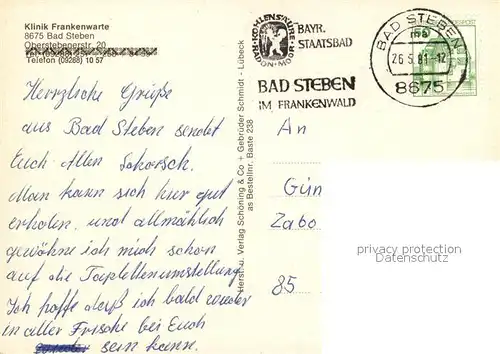 Klinik Frankenwarte
8675 Bad Steben
Oberstebenerstr. 20
Telefon (09288) 10 57
KOHLENSÄURE
RADON + MOOR
BAYR.
STAATSBAD
BAD STEBEN
IM FRANKENWALD
BAD STEBEN
26.5.81-12
8675
Herzliche Grüße
aus Bad Steben sendet
Euch Allen
Man kann sich hier gut
erholen, und allmählich
gewöhne ich mich schon
auf die Toilettenumstellung
Ich hoffe daß ich bald wieder
in alter Frische bei Euch
sein kann.
Herst. u. Verlag Schöning & Co + Gebrüder Schmidt - Lübeck
as Bestellnr. Baste 238
An
Gün
Zabo
85
privacy protection
Datenschutz